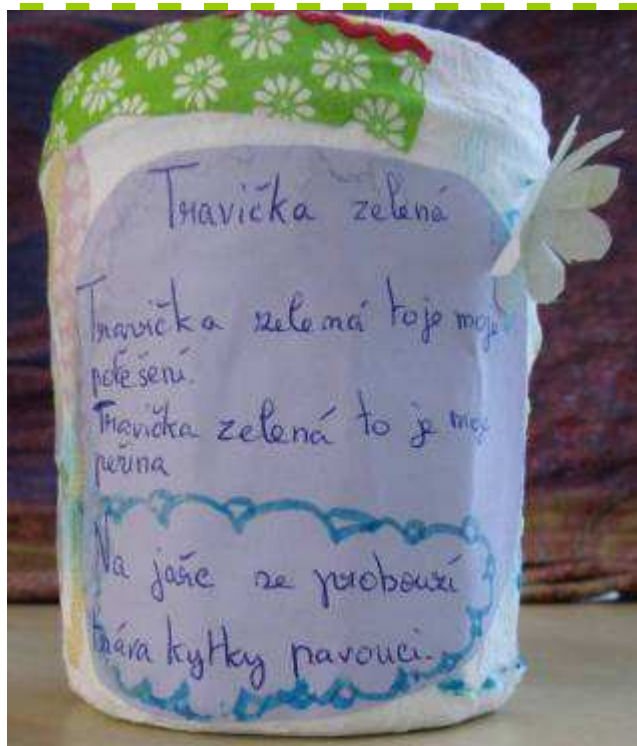 Travička zelená
Travička zelená to je moje
potěšení.
Travička zelená to je moje
peřina
Na jaře se probouzí
tráva kytky pavouci.